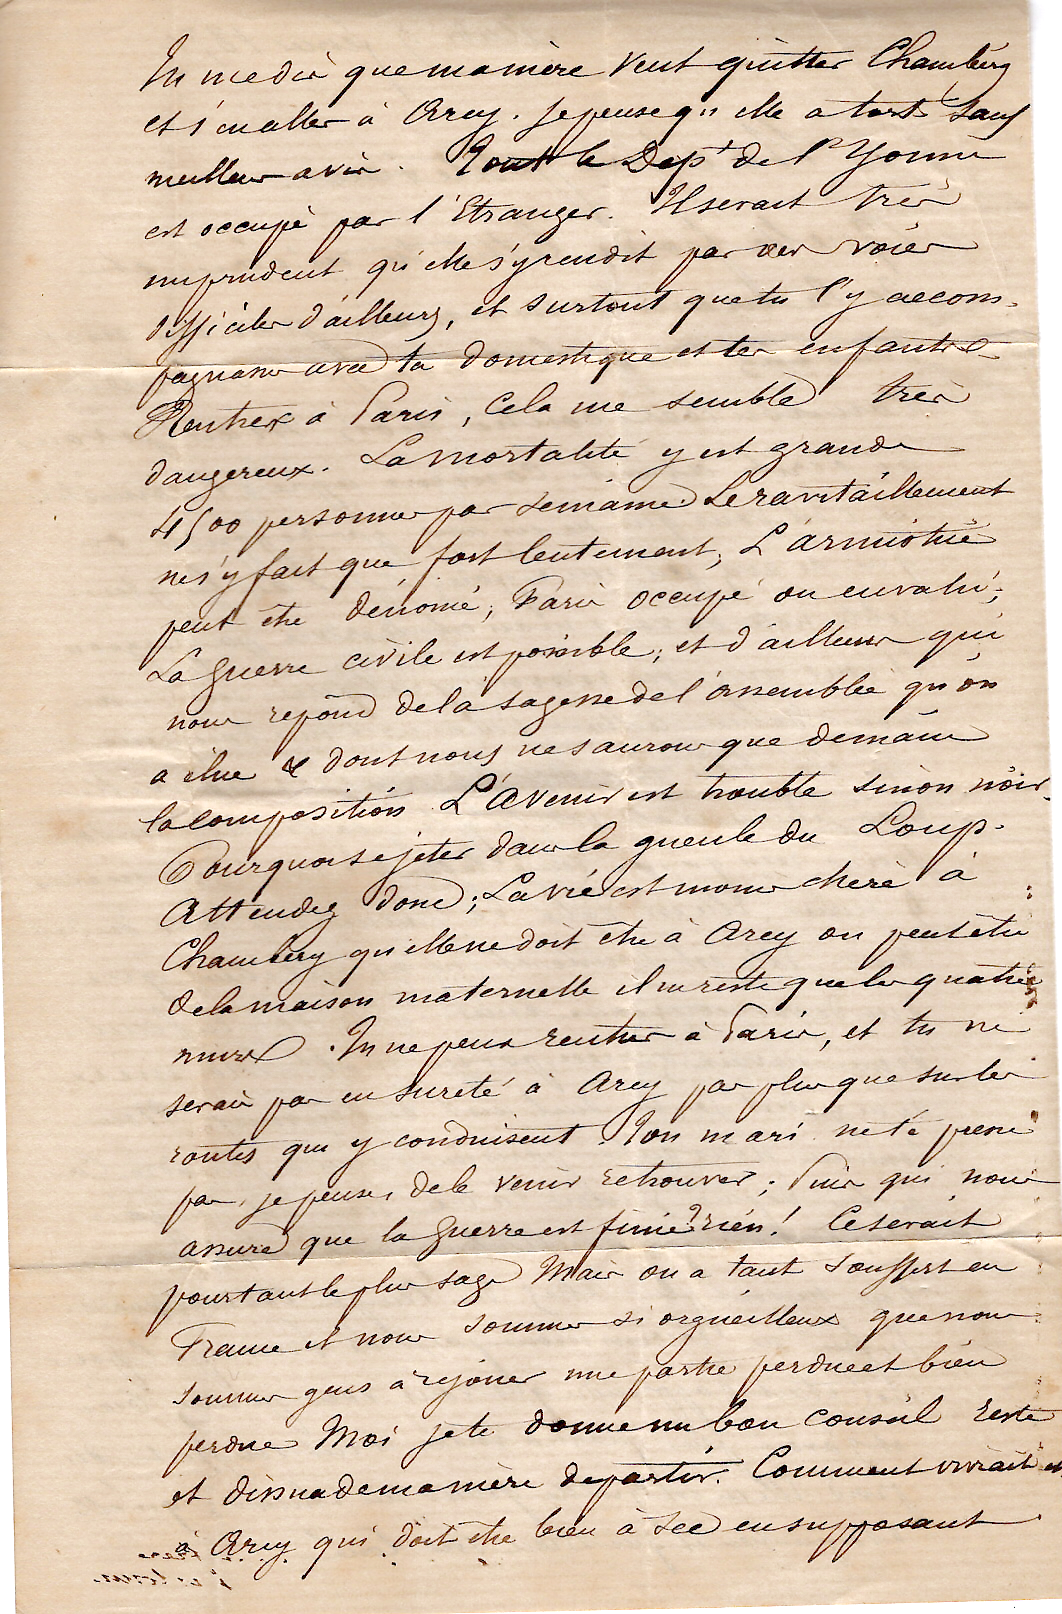 Tu me dis que ma mère veut quitter Chambéry
et s'en aller à Arcy. Je pense qu'elle a tort sauf
meilleur avis. Tout le Dept de l'Yonne
est occupé par l'Etranger. Il serait très
imprudent qu'elle s'y rendit par des voies
difficiles d'ailleurs, et surtout que tu l'y accom-
pagnasse avec ta domestique et tes enfants
Rentrer à Paris, cela me semble très
dangereux. La mortalité y est grande
4500 personnes par semaine. Le ravitaillement
ne s'y fait que fort lentement; L'armistice
peut être dénoncé, Paris occupé ou envahi;
La guerre civile est possible; et d'ailleurs qui
nous répond de la sagesse de l'assemblée qu'on
a élue & dont nous ne saurons que demain
la composition L'avenir est trouble sinon noir.
Pourquoi se jeter dans la gueule du Loup.
Attendez donc; La vie est moins chère à
Chambéry qu'elle ne doit être à Arcy ou peut être
de la maison maternelle il ne reste que les quatre
murs. Tu ne peux rentrer à Paris, et tu ne
serais pas en sureté à Arcy pas plus que sur les
routes qui y conduisent. Ton mari ne te presse
pas, je pense, de le venir retrouver; Puis qui nous
assure que la guerre est finie? rien! Ce serait
pourtant le plus sage Mais on a tant souffert en
France et nous sommes si orgueilleux que nous
sommes gens à rejouer une partie perdue et bien
perdue Moi je te donne un bon conseil reste
et dissuade ma mère de partir. Comment vivrait
à Arcy qui doit être bien à sec en supposant